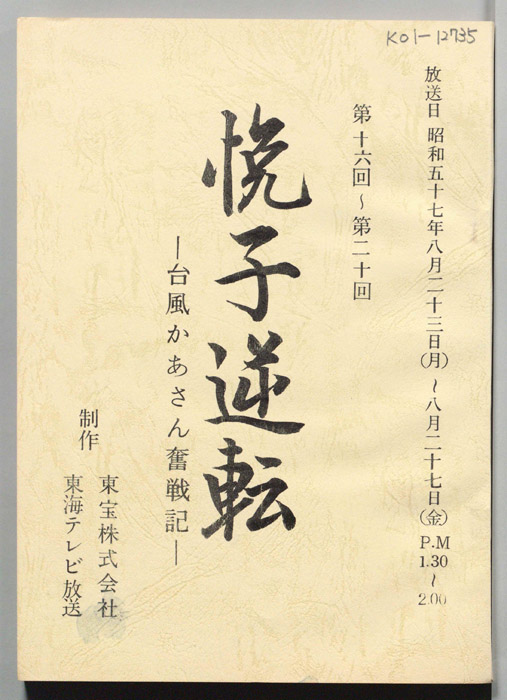 K01-12735
放送日 昭和五十七年八月二十三日(月)~八月二十七日(金) P.M 1.30~2.00
第十六回~第二十回
悦子逆転
―台風かあさん奮戦記―
制作 東宝株式会社
東海テレビ放送